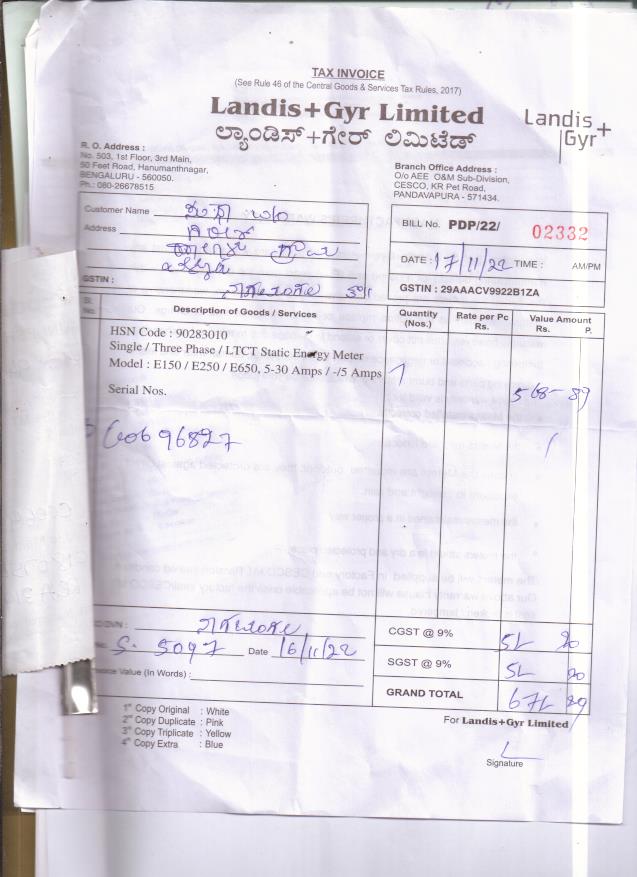 TAX INVOICE
(See Rule 46 of the Central Goods & Services Tax Rules, 2017)
Landis+Gyr Limited
ಲ್ಯಾಂಡಿಸ್+ಗೇರ್ ಲಿಮಿಟೆಡ್
Landis+
Gyr
R. O. Address :
No. 503, 1st Floor, 3rd Main,
50 Feet Road, Hanumanthnagar,
BENGALURU - 560050.
Ph.: 080-26678515
Branch Office Address :
O/o AEE O&M Sub-Division,
CESCO, KR Pet Road,
PANDAVAPURA - 571434.
Customer Name
Address
GSTIN :
BILL No. PDP/22/ 02332
DATE : 17/11/22 TIME : AM/PM
GSTIN : 29AAACV9922B1ZA
Sl. No. Description of Goods / Services Quantity (Nos.) Rate per Pc Rs. Value Amount Rs. P.
HSN Code : 90283010
Single / Three Phase / LTCT Static Energy Meter
Model : E150 / E250 / E650, 5-30 Amps / -/5 Amps 1
568-89
Serial Nos.
96827
Date 16/11/22
Invoice Value (In Words) :
CGST @ 9% 51 20
SGST @ 9% 51 20
GRAND TOTAL 671 29
1st Copy Original : White
2nd Copy Duplicate : Pink
3rd Copy Triplicate : Yellow
4th Copy Extra : Blue
For Landis+Gyr Limited
Signature